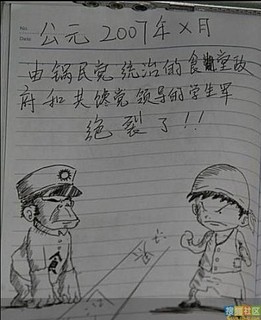 No:
Date:
公元 2007年×月
由锅民党统治的食堂政
府和共馋党领导的学生军
绝裂了!!
搜狐社区